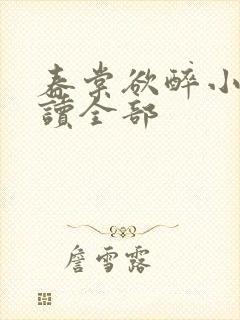 春棠欲醉小
讀全部
詹雪露